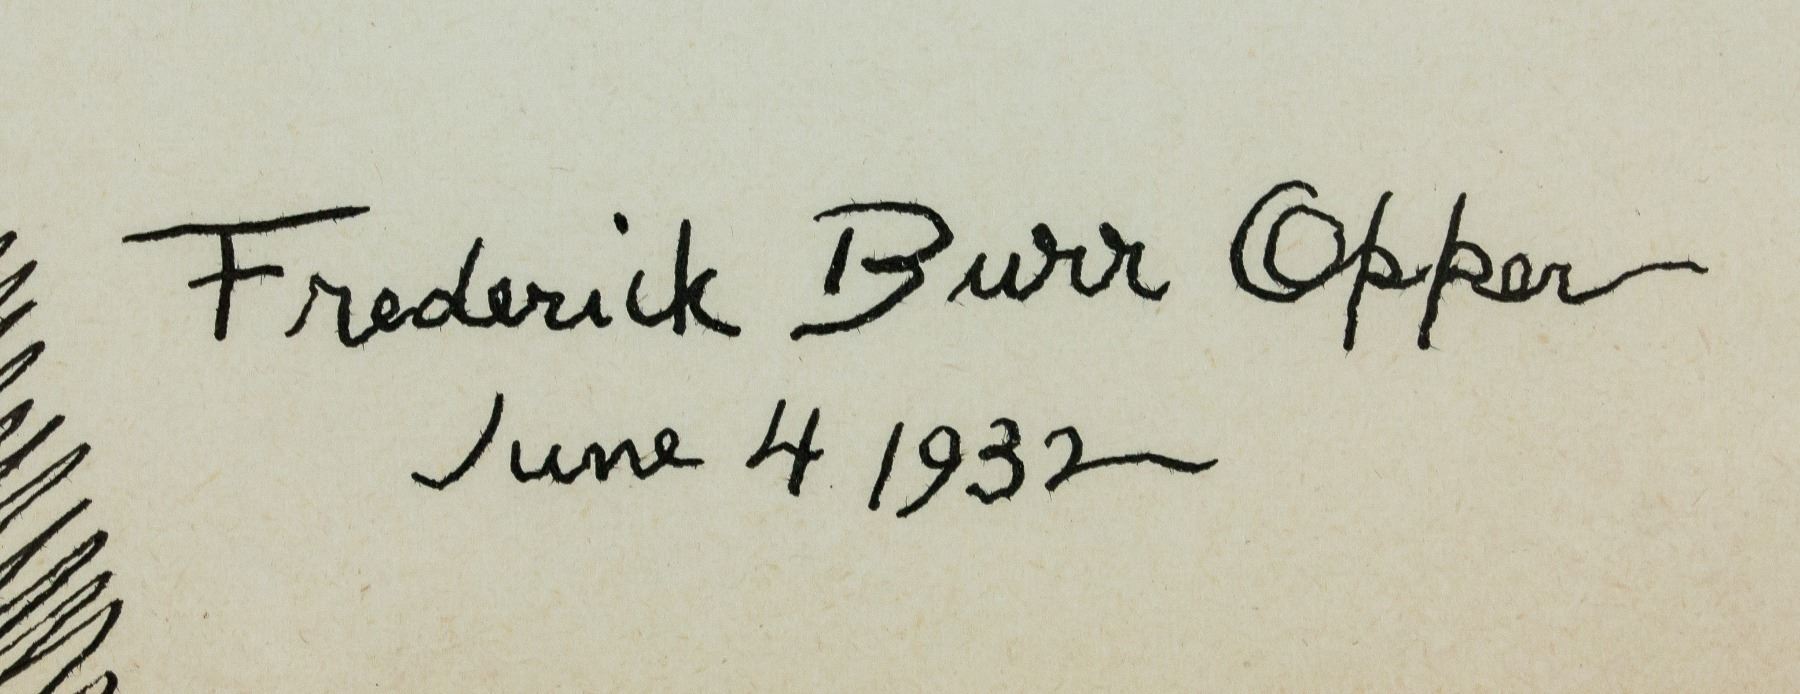 Frederick Burr Opper
June 4 1932